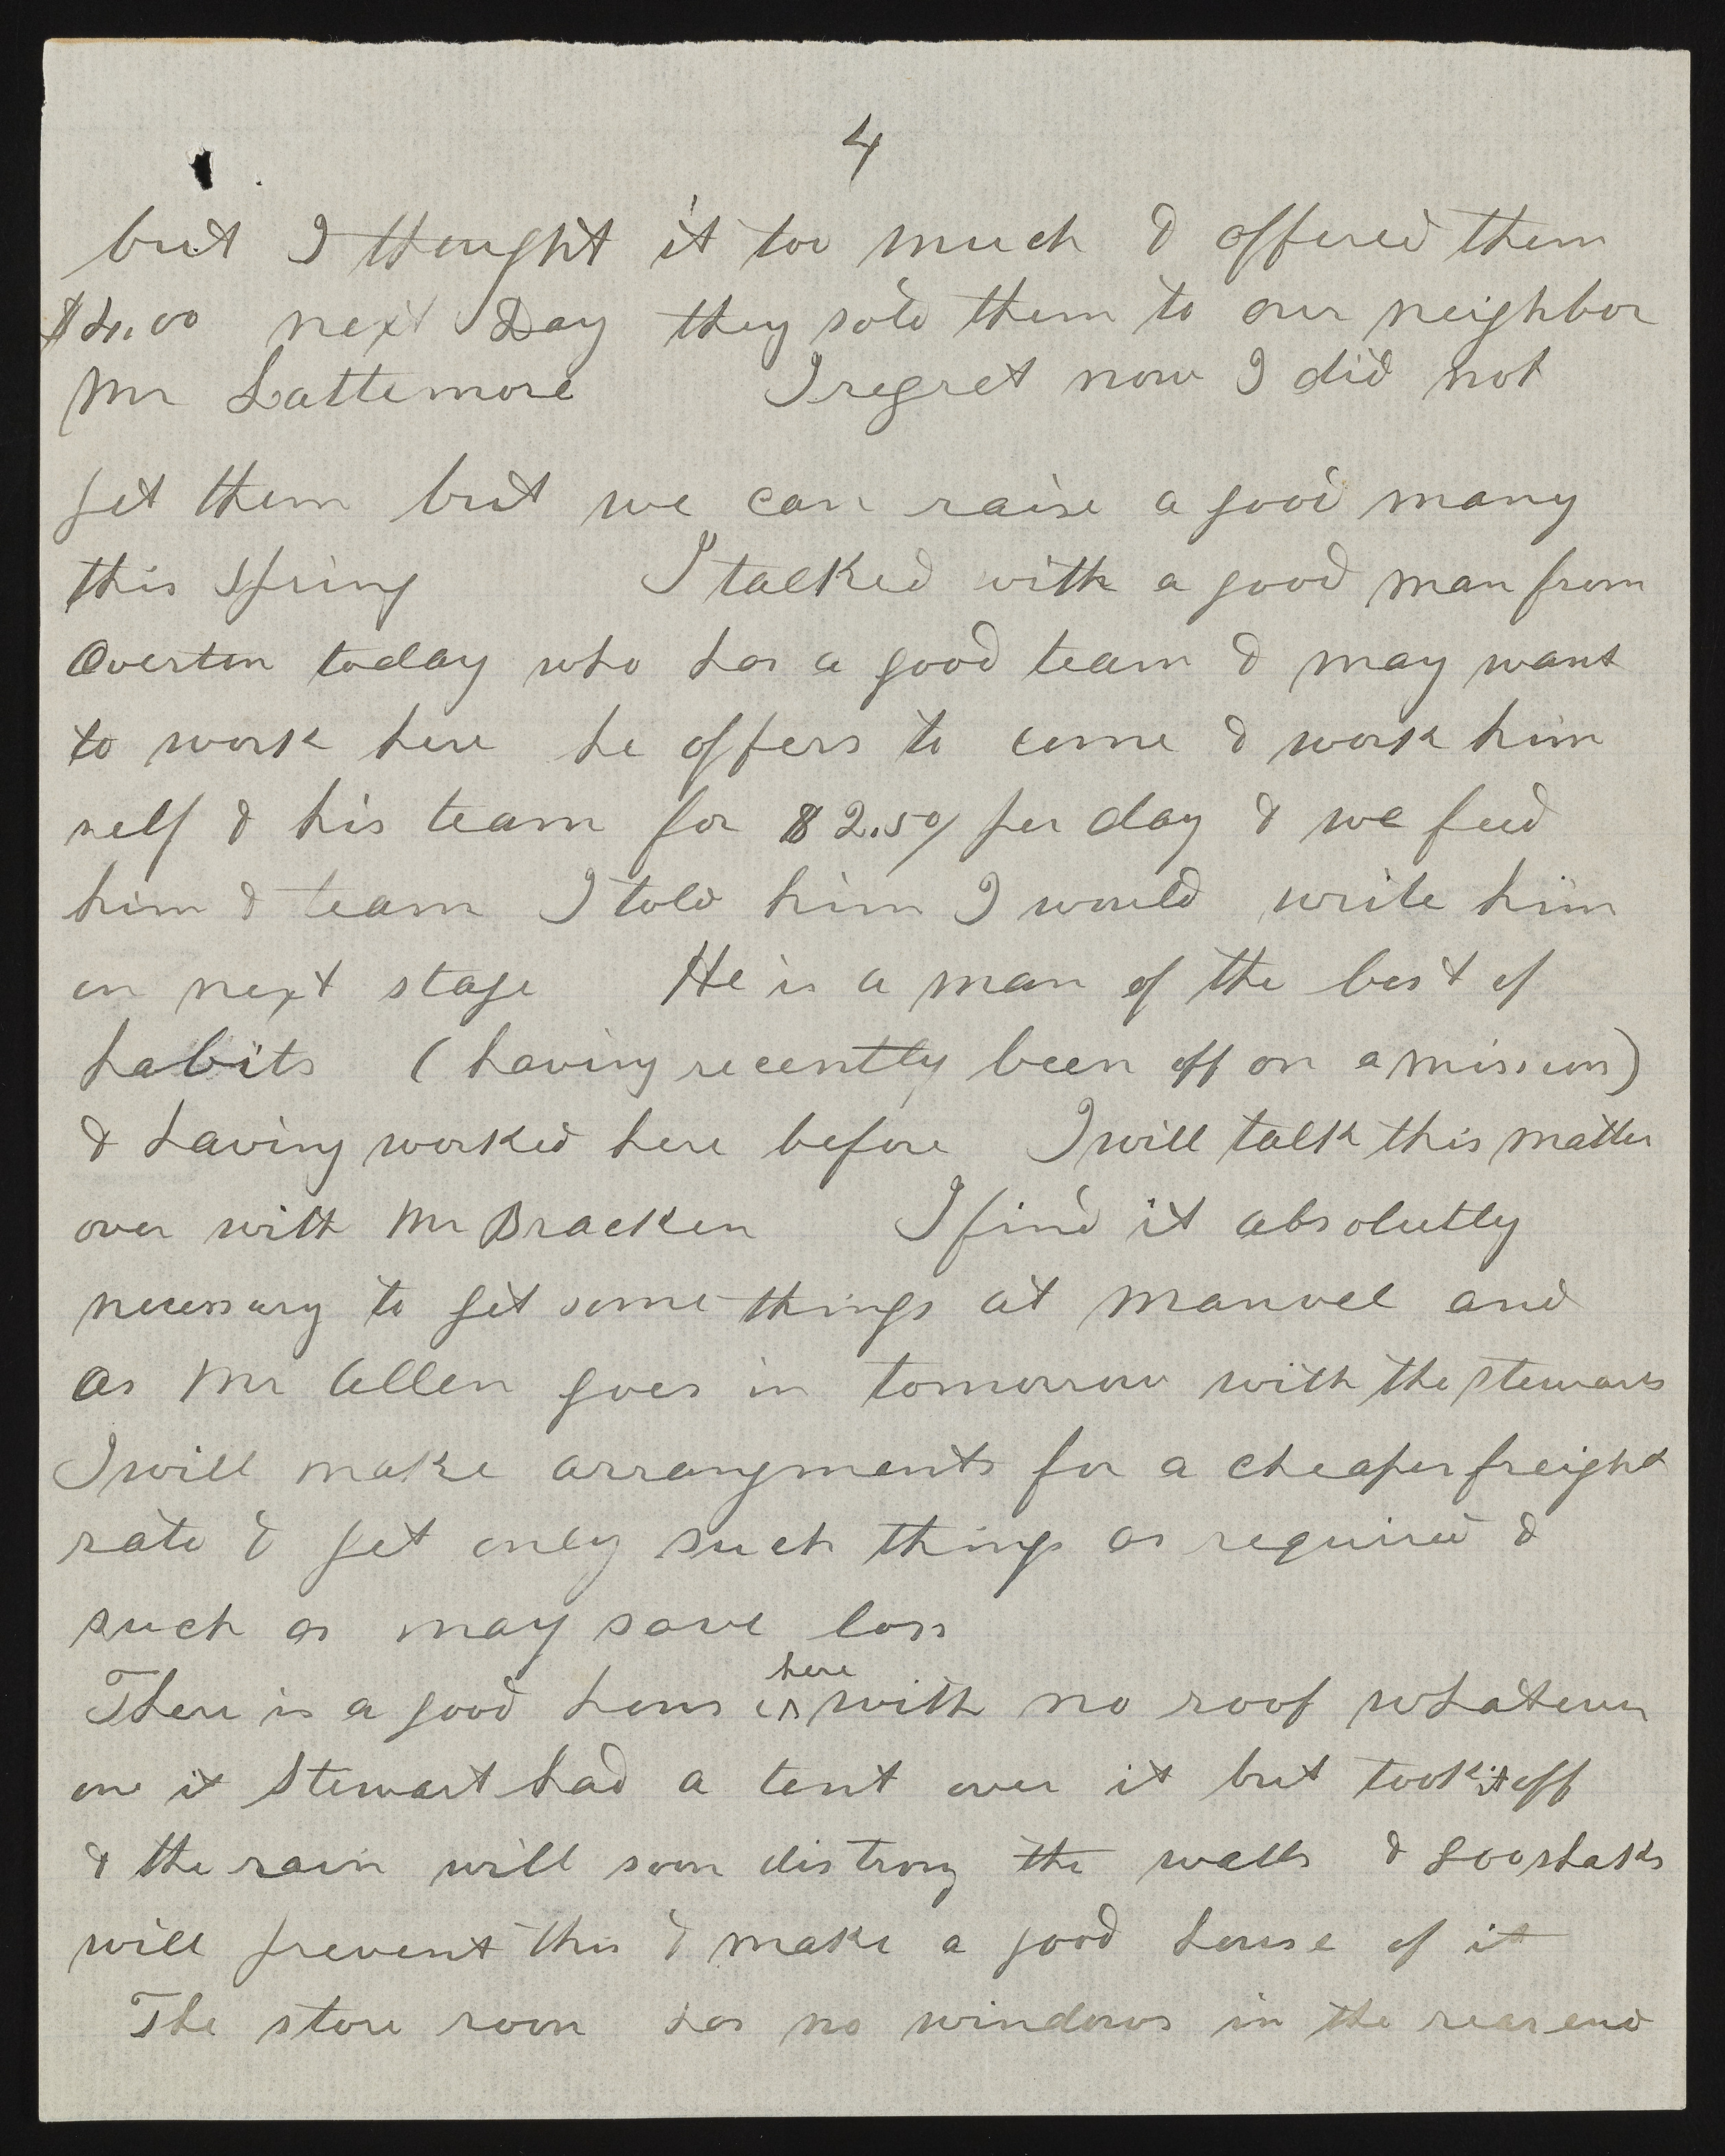 4
but I thought it too much & offered them
$4.00 next Day they sold them to our neighbor
Mr Lattemore I regret now I did not
get them but we can raise a good many
this Spring I talked with a good man from
Overton today who has a good team & may want
to work here he offers to come & work him
self & his team for $2.50/ per day & we feed
him & team I told him I would write him
on next stage He is a man of the best of
habits (having recently been off on a mission)
& having worked here before I will talk this matter
over with Mr Bracken I find it absolutly
necessary to get some things at Manvel and
as Mr Allen goes in tomorrow with the Stewarts
I will make arrangments for a cheaper freight
rate & get only such things as required &
such as may save loss
There is a good hous here with no roof whatever
one it Stewart had a tent over it but took it off
& the rain will soon distroy the walls & 500 shaks
will prevent this & make a good house of it
The store room has no windows in the rear end